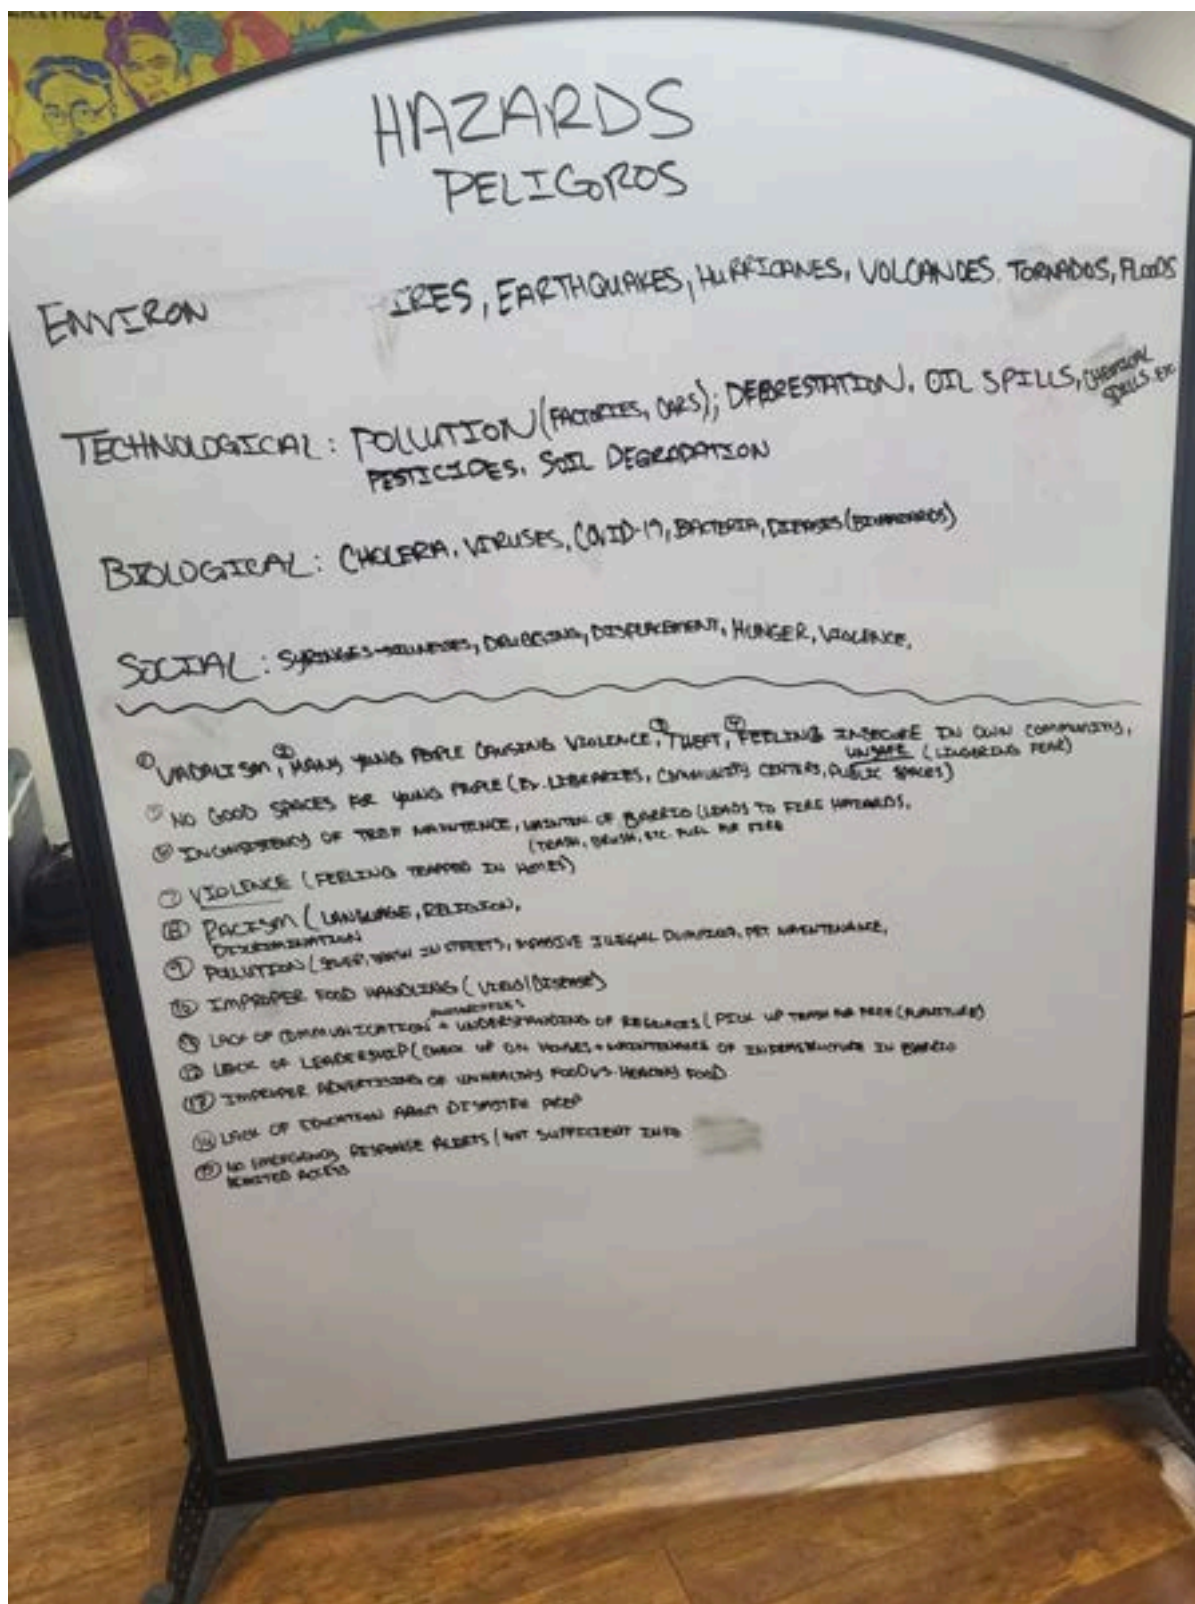 HAZARDS
PELIGOROS
ENVIRON IRES, EARTHQUAKES, HURRICANES, VOLCANOES. TORNADOS, FLOODS
TECHNOLOGICAL: POLLUTION (FACTORIES, CARS); DEFORESTATION, OIL SPILLS, CHEMICAL
SPILLS. ETC
PESTICIDES. SOIL DEGRADATION
BIOLOGICAL: CHOLERA, VIRUSES, COVID-19, BACTERIA, DISEASES (BIOHAZARDS)
SOCIAL: SYRINGES-ILLNESSES, DISPLACEMENT, HUNGER, VIOLENCE,
① VADALISM, ② MANY YOUNG PEOPLE CAUSING VIOLENCE, ③ THEFT, ④ FEELING INSECURE IN OWN COMMUNITY,
UNSAFE (LINGERING FEAR)
⑤ NO GOOD SPACES FOR YOUNG PEOPLE (EX. LIBRARIES, COMMUNITY CENTERS, PUBLIC SPACES)
⑥ INCONSISTENCY OF MAINTENCE, MAINTEN OF BARRIO (LEADS TO FIRE HAZARDS,
(TRASH, BRUSH, ETC. FUEL FOR FIRE
⑦ VIOLENCE (FEELING TRAPPED IN HOMES)
⑧ RACISM (LANGUAGE, RELIGION,
DISCRIMINATION
⑨ POLLUTION (SEWER, TRASH IN STREETS, MASSIVE ILLEGAL DUMPING, PET MAINTENANCE,
⑩ IMPROPER FOOD HANDLING (VIRUS/DISEASE)
⑪ LACK OF COMMUNICATION + UNDERSTANDING OF RESOURCES (PICK UP TRASH FOR FREE (FURNITURE)
⑫ LACK OF LEADERSHIP (CHECK UP ON HOUSES + MAINTENANCE OF INFRASTRUCTURE IN BARRIO
⑬ IMPROPER ADVERTISING OF UNHEALTHY FOOD VS. HEALTHY FOOD
⑭ LACK OF EDUCATION ABOUT DISASTER PREP
⑮ NO EMERGENCY RESPONSE ALERTS (NOT SUFFICIENT INFO
LIMITED ACCESS